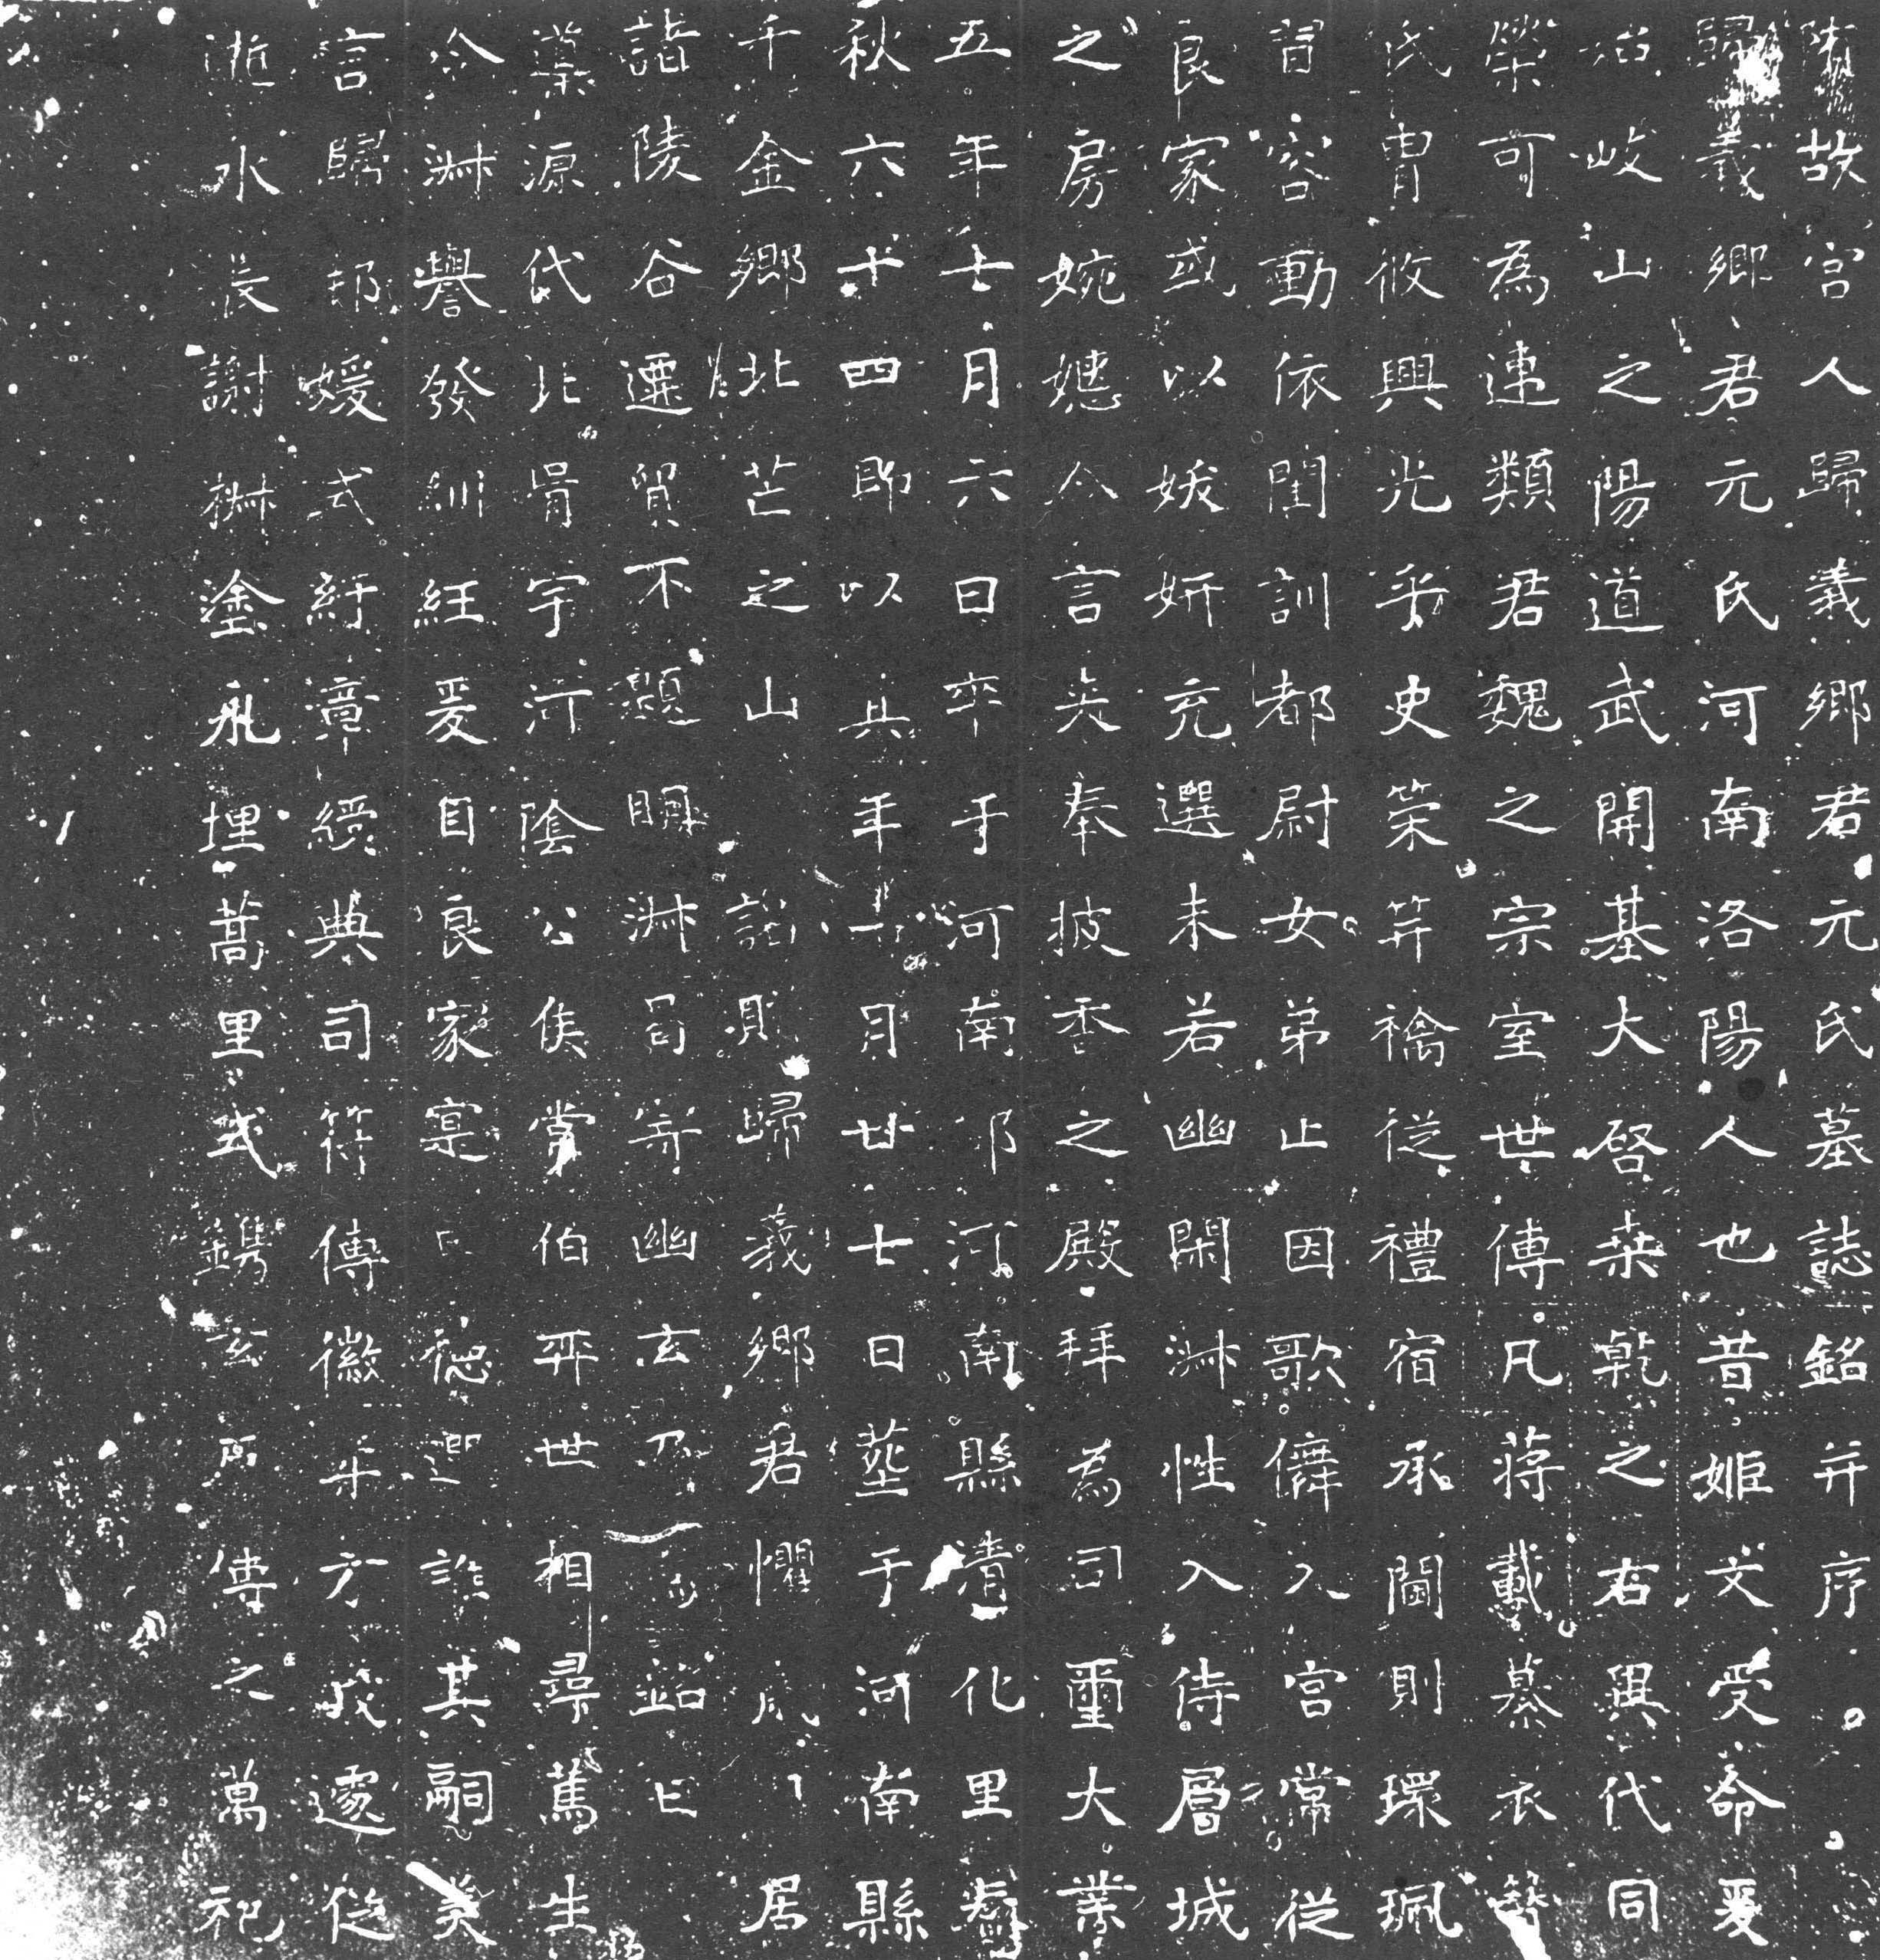 隋故宮人歸義鄉君元氏墓誌銘并序
歸義鄉君元氏河南洛陽人也昔姬文受命爰
始岐山之陽道武開基大啓桒乾之右異代同
榮可為連類君魏之宗室世傳凡蔣載纂衣簪
氏胄攸興光乎史筞笄襘從禮宿承閫則環珮
習容動依閨訓都尉女弟止因歌儛入宮常從
良家或以娥妍充選未若幽閑淋性入侍層城
之房婉嬺令言矣奉披香之殿拜為司璽大業
五年七月六日卒于河南郡河南縣清化里春
秋六十四即以其年十月廿七日葬于河南縣
千金鄉北芒之山 詔賜歸義鄉君懼居
諸陵谷遷貿不題明淋何寄幽玄乃為銘曰
導源代北胥宇河陰公侯賞伯弈世相尋篤生
令淋譽發紃紝爰自良家寔德誰其嗣美
言歸邦媛式紆章綬典司符傳徽年方茂遽從
逝水長謝椒塗永埋蒿里式鐫玄石傳之萬祀